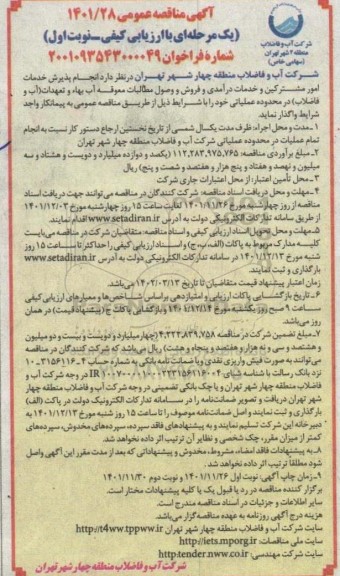 آگهی مناقصه عمومی ۱۴۰۱/۲۸
(یک مرحله‌ای با ارزیابی کیفی - نوبت اول)
شماره فراخوان ۲۰۰۱۰۹۳۵۴۳۰۰۰۰۴۹
شرکت آب و فاضلاب
منطقه ۴ شهر تهران
(سهامی خاص)
شرکت آب و فاضلاب منطقه چهار شهر تهران در نظر دارد انجام پذیرش خدمات
امور مشترکین و خدمات درآمدی و فروش و وصول مطالبات معوقه آب بهاء و تعهدات (آب و
فاضلاب) در محدوده عملیاتی خود را با شرایط ذیل از طریق مناقصه عمومی به پیمانکار واجد
شرایط واگذار نماید.
۱- مدت و محل اجرا: ظرف مدت یکسال شمسی از تاریخ نخستین ارجاع دستور کار نسبت به انجام
تمام عملیات در محدوده عملیاتی شرکت آب و فاضلاب منطقه چهار شهر تهران
۲- مبلغ برآوردی مناقصه: ۱۱۲,۲۸۳,۹۷۵,۷۶۵ (یکصد و دوازده میلیارد و دویست و هشتاد و سه
میلیون و نهصد و هفتاد و پنج هزار و هفتصد و شصت و پنج) ریال
۳- محل تأمین اعتبار: از محل اعتبارات جاری شرکت
۴- مهلت و محل دریافت اسناد مناقصه: شرکت کنندگان در مناقصه می‌توانند جهت دریافت اسناد
مناقصه از روز چهارشنبه مورخ ۱۴۰۱/۱۱/۲۶ لغایت ساعت ۱۵ روز چهارشنبه مورخ ۱۴۰۱/۱۲/۰۳
از طریق سامانه تدارکات الکترونیکی دولت به آدرس www.setadiran.ir اقدام نمایند.
۵- مهلت و محل تحویل اسناد ارزیابی کیفی و اسناد مناقصه: متقاضیان شرکت در مناقصه می‌بایست
کلیه مدارک مربوط به پاکات (الف، ب، ج) و اسناد ارزیابی کیفی را حداکثر تا ساعت ۱۵ روز
شنبه مورخ ۱۴۰۱/۱۲/۱۳ در سامانه تدارکات الکترونیکی دولت به آدرس www.setadiran.ir
بارگذاری و ثبت نمایند.
زمان اعتبار پیشنهاد قیمت متقاضیان تا تاریخ ۱۴۰۲/۰۳/۱۳ می‌باشد.
۶- تاریخ بازگشایی پاکات ارزیابی و امتیازدهی براساس شاخص‌ها و معیارهای ارزیابی کیفی
ساعت ۹ صبح روز یکشنبه مورخ ۱۴۰۱/۱۲/۱۴ و بازگشایی پاکات ج (پیشنهاد قیمت) در همان
روز می‌باشد.
۷- مبلغ تضمین شرکت در مناقصه ۴,۲۲۳,۸۳۹,۷۵۸ (چهار میلیارد و دویست و بیست و دو میلیون
و هشتصد و سی و نه هزار و هفتصد و پنجاه و هشت) ریال می‌باشد که شرکت کنندگان در مناقصه
می‌توانند به صورت فیش واریزی نقدی و یا ضمانت نامه بانکی به شماره حساب
نزد بانک رسالت با شناسه شبای در وجه شرکت آب و
فاضلاب منطقه چهار شهر تهران و یا چک بانکی تضمینی در وجه شرکت آب و فاضلاب منطقه چهار
شهر تهران دریافت و تصویر ضمانتنامه را در سامانه تدارکات الکترونیک دولت در پاکت (الف)
بارگذاری و ثبت نمایند و اصل ضمانت‌نامه موصوف را تا ساعت ۱۵ روز شنبه مورخ ۱۴۰۱/۱۲/۱۳ به
دبیرخانه این شرکت تسلیم نمایند و به پیشنهادهای فاقد سپرده، سپرده‌های مخدوش، سپرده‌های
کمتر از میزان مقرر، چک شخصی و نظایر آن ترتیب اثر داده نخواهد شد.
۸- به پیشنهادات فاقد امضاء، مشروط، مخدوش و پیشنهاداتی که بعد از مدت مقرر این آگهی واصل
شود مطلقا ترتیب اثر داده نخواهد شد.
۹- زمان چاپ آگهی: نوبت اول ۱۴۰۱/۱۱/۲۶ و نوبت دوم ۱۴۰۱/۱۱/۳۰
برگزار کننده مناقصه در رد یا قبول یک یا کلیه پیشنهادات مختار است.
سایر اطلاعات و جزئیات در اسناد مناقصه مندرج است.
هزینه درج آگهی روزنامه به عهده مناقصه‌گزار می‌باشد.
سایت شرکت آب و فاضلاب منطقه چهار شهر تهران http://t4ww.tppww.ir
سایت ملی مناقصات: http://iets.mporg.ir
سایت شرکت مهندسی: http:tender.nww.co.ir
شرکت آب و فاضلاب منطقه چهار شهر تهران